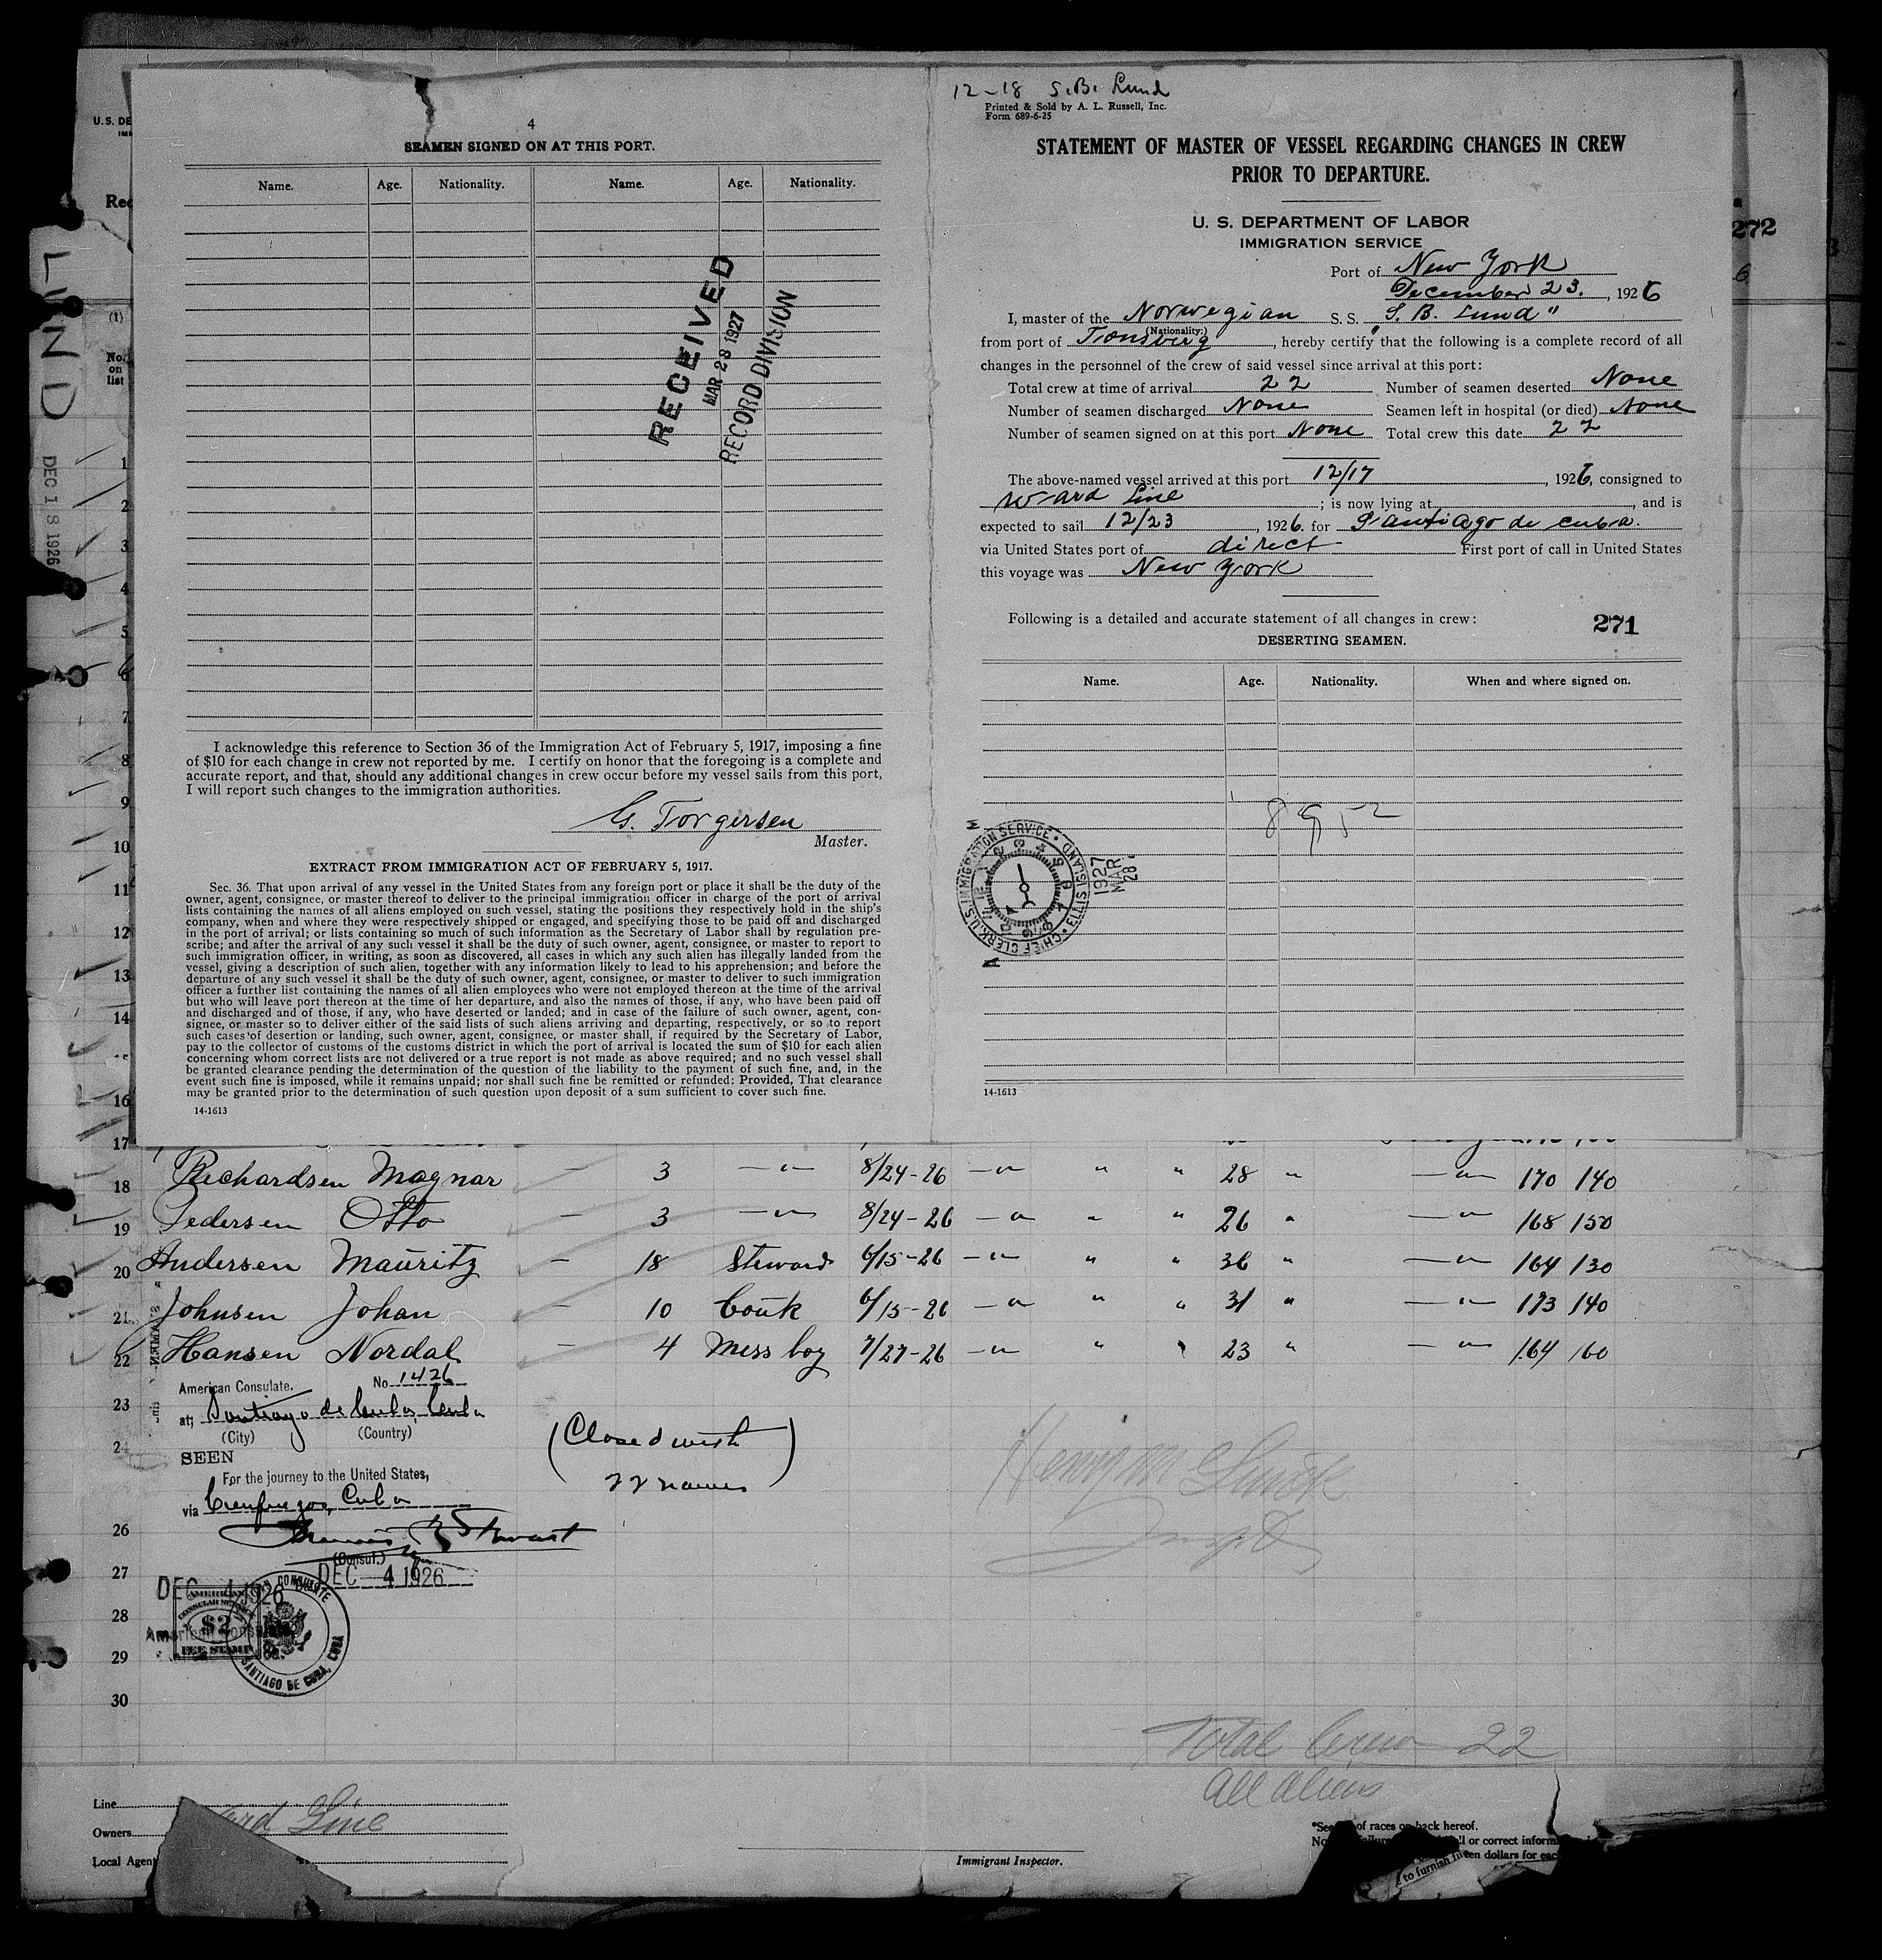 4
SEAMEN SIGNED ON AT THIS PORT.
Name. Age. Nationality. Name. Age. Nationality.
RECEIVED
MAR 28 1927
RECORD DIVISION
I acknowledge this reference to Section 36 of the Immigration Act of February 5, 1917, imposing a fine
of $10 for each change in crew not reported by me. I certify on honor that the foregoing is a complete and
accurate report, and that, should any additional changes in crew occur before my vessel sails from this port,
I will report such changes to the immigration authorities.
G. Torgersen
Master.
EXTRACT FROM IMMIGRATION ACT OF FEBRUARY 5, 1917.
Sec. 36. That upon arrival of any vessel in the United States from any foreign port or place it shall be the duty of the
owner, agent, consignee, or master thereof to deliver to the principal immigration officer in charge of the port of arrival
lists containing the names of all aliens employed on such vessel, stating the positions they respectively hold in the ship's
company, when and where they were respectively shipped or engaged, and specifying those to be paid off and discharged
in the port of arrival; or lists containing so much of such information as the Secretary of Labor shall by regulation pre-
scribe; and after the arrival of any such vessel it shall be the duty of such owner, agent, consignee, or master to report to
such immigration officer, in writing, as soon as discovered, all cases in which any such alien has illegally landed from the
vessel, giving a description of such alien, together with any information likely to lead to his apprehension; and before the
departure of any such vessel it shall be the duty of such owner, agent, consignee, or master to deliver to such immigration
officer a further list containing the names of all alien employees who were not employed thereon at the time of the arrival
but who will leave port thereon at the time of her departure, and also the names of those, if any, who have been paid off
and discharged and of those, if any, who have deserted or landed; and in case of the failure of such owner, agent, con-
signee, or master so to deliver either of the said lists of such aliens arriving and departing, respectively, or so to report
such cases of desertion or landing, such owner, agent, consignee, or master shall, if required by the Secretary of Labor,
pay to the collector of customs of the customs district in which the port of arrival is located the sum of $10 for each alien
concerning whom correct lists are not delivered or a true report is not made as above required; and no such vessel shall
be granted clearance pending the determination of the question of the liability to the payment of such fine, and, in the
event such fine is imposed, while it remains unpaid; nor shall such fine be remitted or refunded: Provided, That clearance
may be granted prior to the determination of such question upon deposit of a sum sufficient to cover such fine.
14-1613
12-18 S.B. Lund
Printed & Sold by A. L. Russell, Inc.
Form 689-6-25
STATEMENT OF MASTER OF VESSEL REGARDING CHANGES IN CREW
PRIOR TO DEPARTURE.
U. S. DEPARTMENT OF LABOR
IMMIGRATION SERVICE
Port of New York
December 23. , 1926
I, master of the Norwegian S. S. "S. B. Lund"
(Nationality:)
from port of Tonsberg , hereby certify that the following is a complete record of all
changes in the personnel of the crew of said vessel since arrival at this port:
Total crew at time of arrival 22 Number of seamen deserted None
Number of seamen discharged None Seamen left in hospital (or died) None
Number of seamen signed on at this port None Total crew this date 22
The above-named vessel arrived at this port 12/17 , 1926, consigned to
Ward Line ; is now lying at , and is
expected to sail 12/23 , 1926. for Santiago de cuba.
via United States port of direct First port of call in United States
this voyage was New York
Following is a detailed and accurate statement of all changes in crew:
271
DESERTING SEAMEN.
Name. Age. Nationality. When and where signed on.
8952
CHIEF CLERK, U.S. IMMIGRATION SERVICE • ELLIS ISLAND •
1927
MAR
28
14-1613
U.S. DE
Rec
272
LUND
DEC 18 1926
(1)
No.
on
list
1
2
3
4
5
6
7
8
9
10
11
12
13
14
16
17
18 Richardsen Magnar — 3 —"— 8/24-26 —"— " " 28 " —"— 170 140
19 Pedersen Otto — 3 —"— 8/24-26 —"— " " 26 " —"— 168 150
20 Andersen Mauritz — 18 Steward 6/15-26 —"— " " 36 " —"— 164 130
21 Johnsen Johan — 10 Couk 6/15-26 —"— " " 31 " —"— 173 140
22 Hansen Nordal — 4 Mess boy 7/27-26 —"— " " 23 " —"— 164 160
American Consulate. No 1426
23
at; Santiago de Cuba, Cuba
(City) (Country)
24
SEEN
For the journey to the United States,
via Cienfuegos, Cuba
(Closed with
22 names)
26
(Consul.)
27
DEC 4 1926
DEC 4 1926
28
AMERICAN
CONSULAR SERVICE
$2
FEE STAMP
American Consulate
AMERICAN CONSULATE
SANTIAGO DE CUBA, CUBA
29
30
Total Crew 22
all aliens
Line
Owners Ward Line
Local Agent
Immigrant Inspector.
of races on back hereof.
or correct inform
to furnish
een dollars for eac